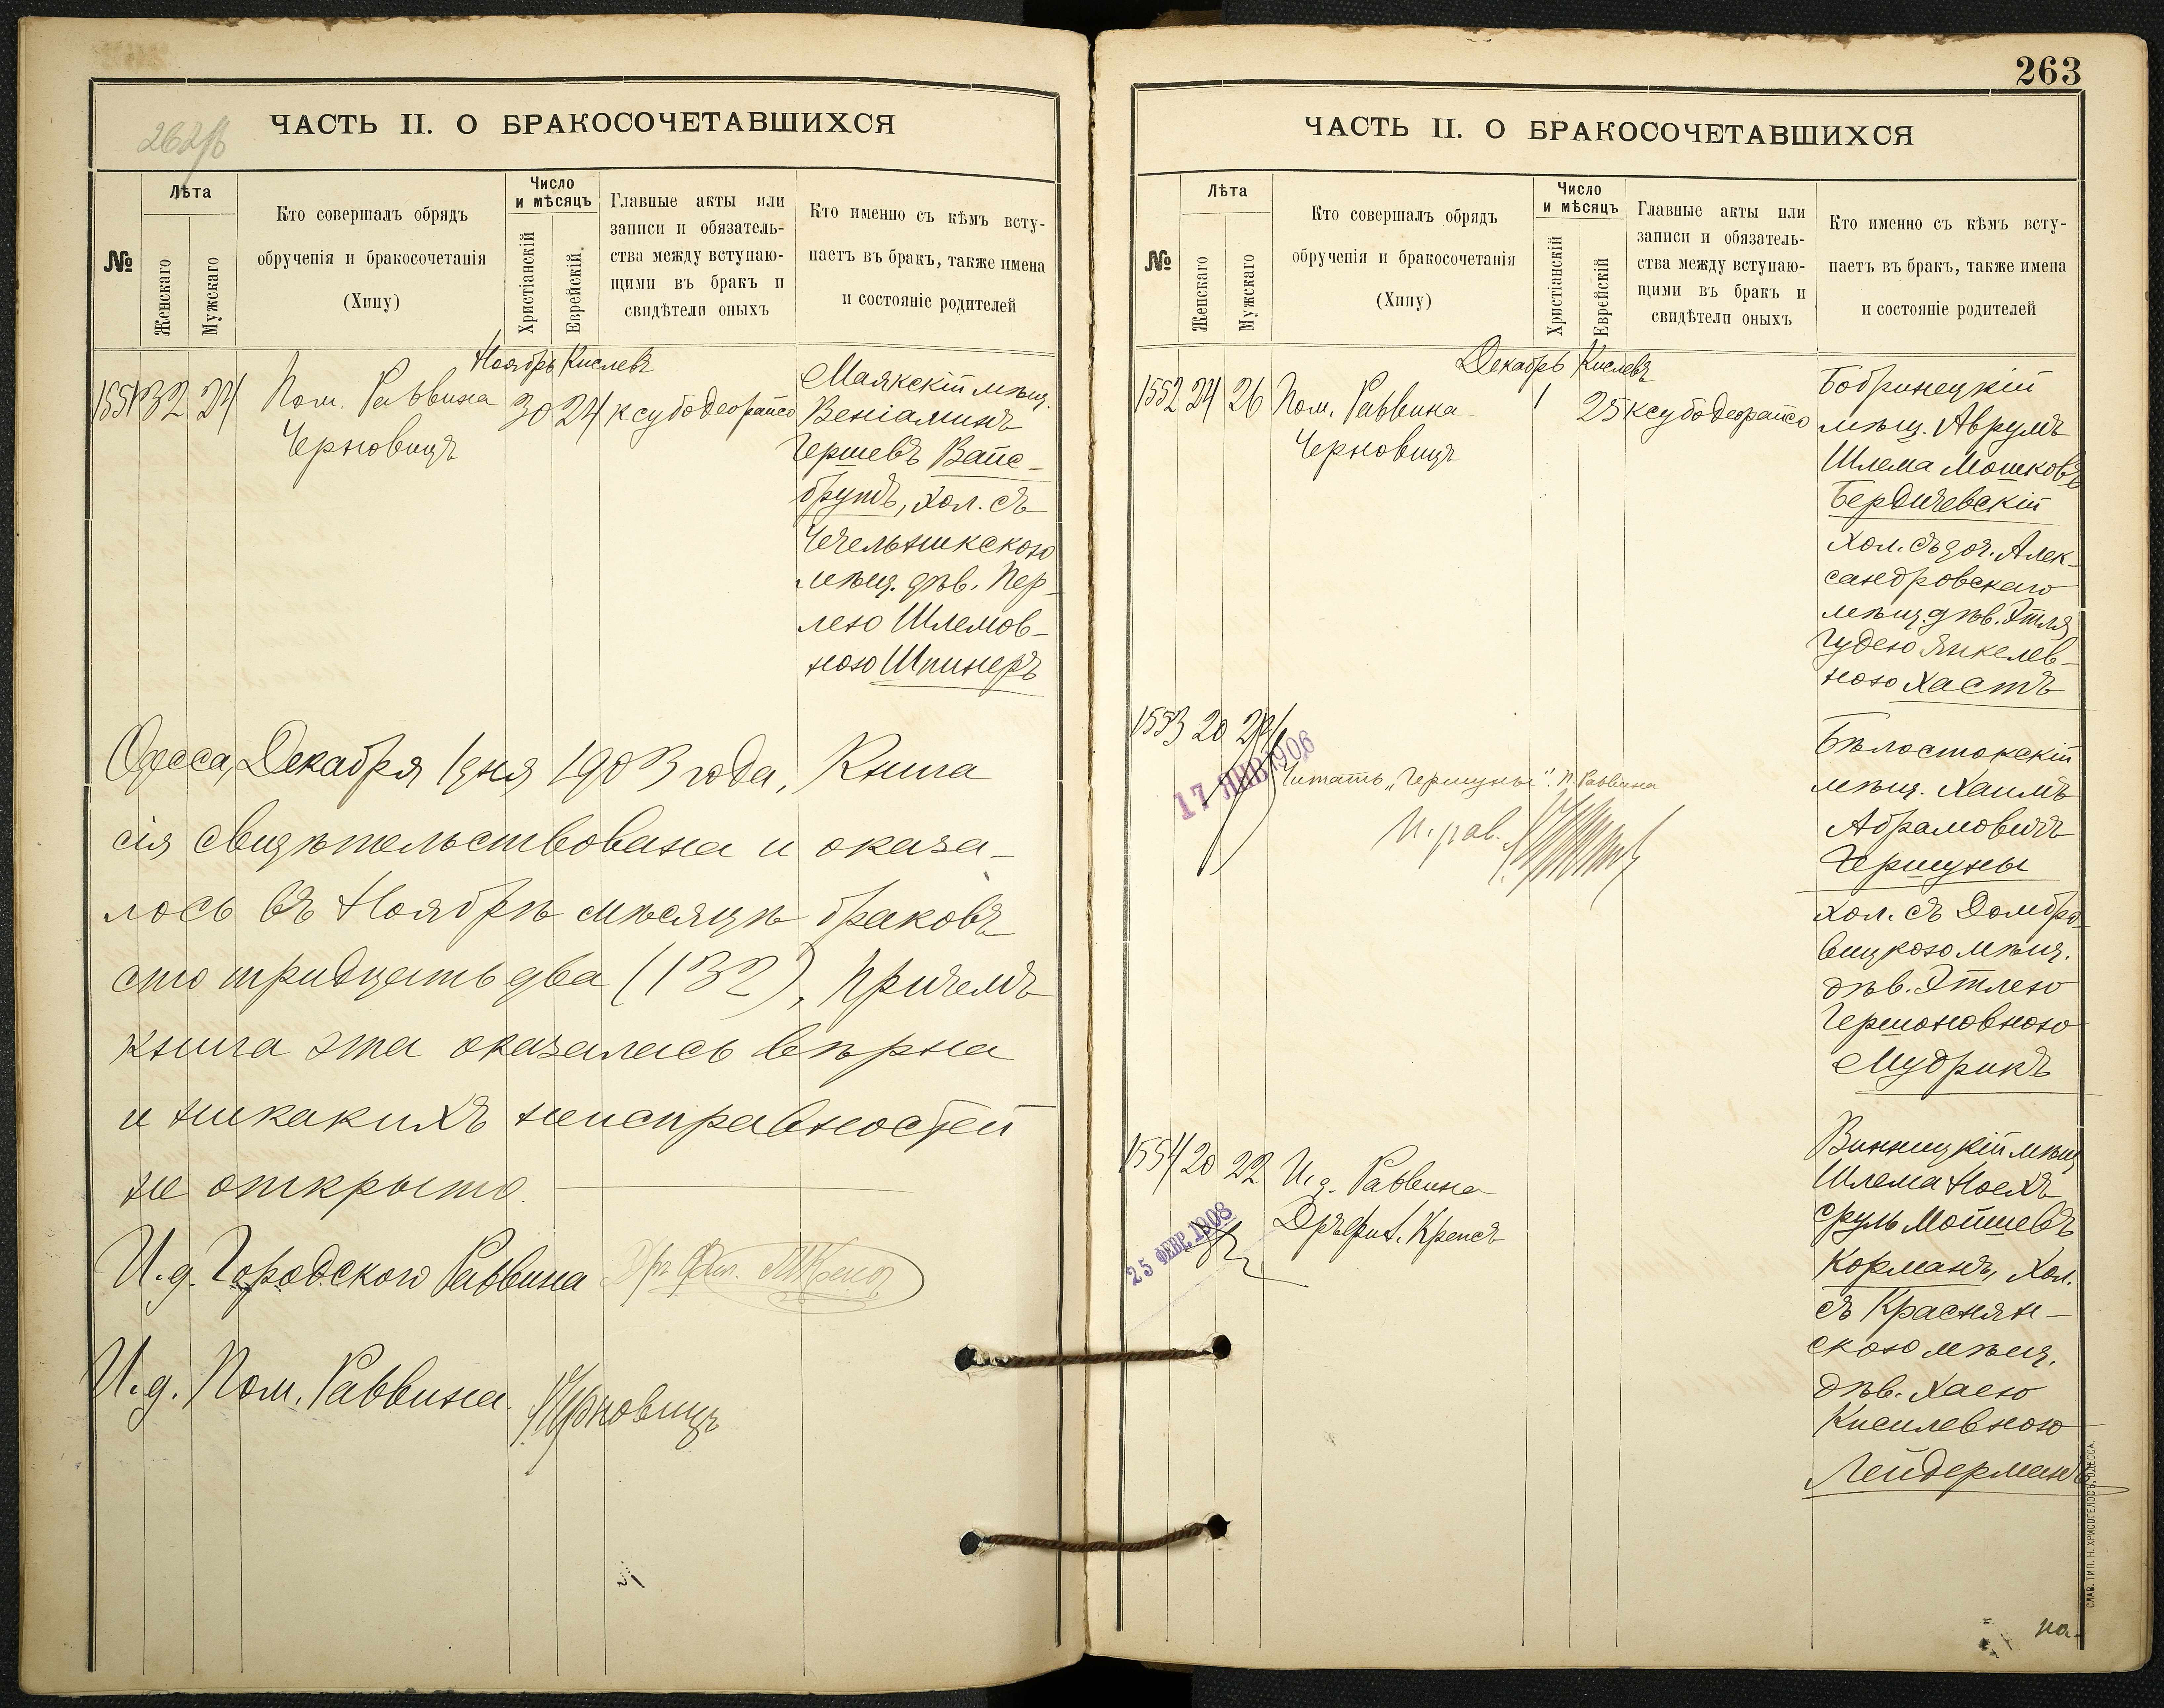 262 об
ЧАСТЬ II. О БРАКОСОЧЕТАВШИХСЯ
№
Лѣта
Женскаго
Мужскаго
Кто совершалъ обрядъ
обрученія и бракосочетанія
(Хипу)
Число
и мѣсяцъ
Христіанскій
Еврейскій.
Главные акты или
записи и обязатель-
ства между вступаю-
щими въ бракъ и
свидѣтели оныхъ
Кто именно съ кѣмъ всту-
паетъ въ бракъ, также имена
и состояніе родителей
Ноябрь Кислевъ
1551 32 24 Пом. Раввина 30 24 ксубо деорайсо
Черновицъ
Маякскій мѣщ.
Веніаминъ
Гершевъ Вайс-
брутъ, хол. съ
Чечельникскою
мѣщ. дѣв. Пер-
лею Шлемов-
ною Шпинеръ
Одесса, Декабря 1 дня 1903 года, Книга
сія свидѣтельствована и оказа-
лось въ Ноябрѣ мѣсяцѣ браковъ
сто тридцать два (132), причемъ
книга эта оказалась вѣрна
и никакихъ неисправностей
не открыто.
И.д. Городского Раввина Дръ Фил. Крепсъ
И.д. Пом. Раввина. Черновицъ
263
ЧАСТЬ II. О БРАКОСОЧЕТАВШИХСЯ
№
Лѣта
Женскаго
Мужскаго
Кто совершалъ обрядъ
обрученія и бракосочетанія
(Хипу)
Число
и мѣсяцъ
Христіанскій
Еврейскій
Главные акты или
записи и обязатель-
ства между вступаю-
щими въ бракъ и
свидѣтели оныхъ
Кто именно съ кѣмъ всту-
паетъ въ бракъ, также имена
и состояніе родителей
Декабрь Кислевъ
1552 24 26 Пом. Раввина 1 25 ксубо деорайсо
Черновицъ
Бобринецкій
мѣщ. Аврумъ
Шлема Мошковъ
Бердичевскій
хол. съ доч. Алек-
сандровскаго
мѣщ. дѣв. Этля
Гудею Янкелев-
ною Хастъ
1553 20 24
17 ЯНВ 1906
Читать „Гершуны". П. Раввина
Бѣлостокскій
мѣщ. Хаимъ
Абрамовичъ
Гершуны
хол. съ Домбро-
вицкою мѣщ.
дѣв. Этлею
Гершоновною
Мудрикъ
1554 20 22 И.д. Раввина
Дръ Фил. Крепсъ
25 ФЕВР. 1908
Винницкій мѣщ
Шлема Ноехъ
Сруль Мойшевъ
Корманъ, хол.
съ Краснян-
скою мѣщ.
дѣв. Хаею
Кисилевною
Лейдерманъ
СЛАВ. ТИП. Н. ХРИСОГЕЛОСЪ, ОДЕССА.
на-